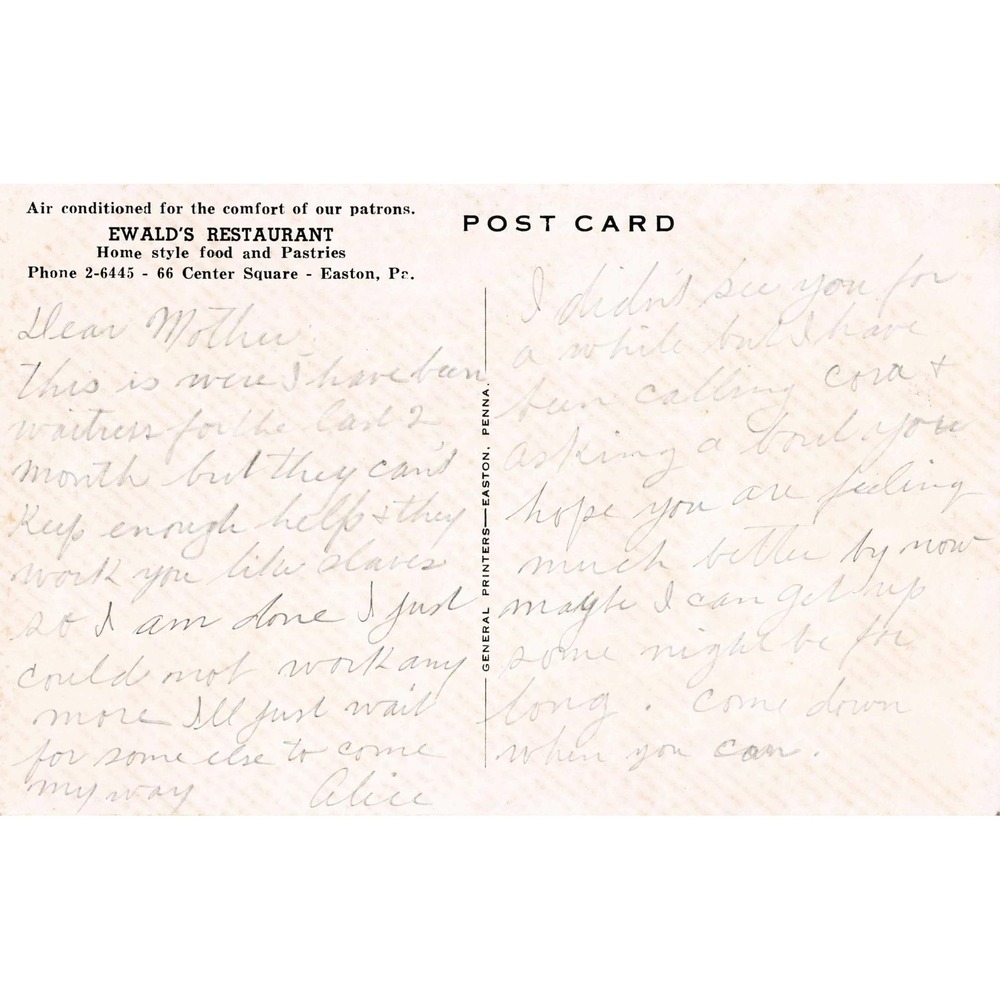 Air conditioned for the comfort of our patrons.
EWALD'S RESTAURANT
Home style food and Pastries
Phone 2-6445 - 66 Center Square - Easton, Pa.
POST CARD
GENERAL PRINTERS—EASTON, PENNA.
Dear Mother,
This is were I have been
waitress for the last 2
month but they can't
keep enough help & they
work you like slaves
so I am done I just
could not work any
more I'll just wait
for some else to come
my way Alice
I didn't see you for
a while but I have
been calling cora &
asking a bout you
hope you are feeling
much better by now
maybe I can get up
some night be for
long. come down
when you can.